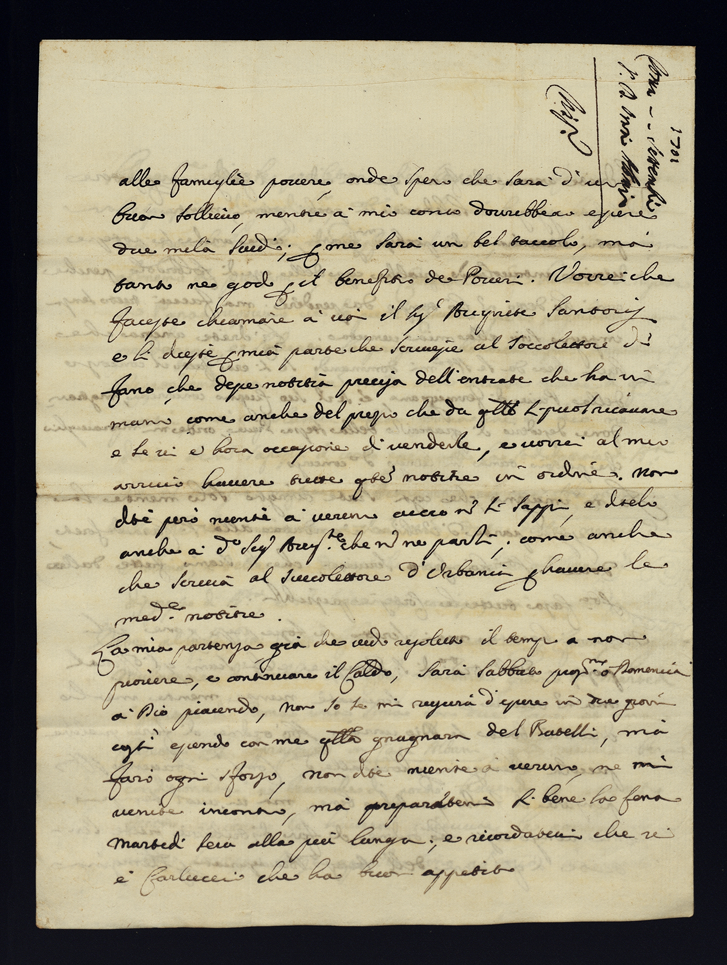 1701
alle famiglie povere, onde spero che sarà d'un
buon sollievo, mentre à mio conto dovrebbero essere
due mila scudi; me sarà un bel taccolo, mà
tanto ne godo il benefitio de Poveri. Vorrei che
faceste chiamare à voi il Sig.r
e li diceste mia parte che scrivesse al Soccolettore di
fano, che depe notitia precisa dell'entrate che ha in
mano come anche del prezo che da li può ricavare
e se vi è hora occasione di venderle, e vorrei al mio
arrivo havere tutte queste notitie in ordine. non
dite però niente à veruno accio n.n si sappi, e ditelo
anche à d.o Sig.r che n.n ne parli; come anche
che scriva al Succolettore d'Urbania havere le
med.e notitie.
La mia partenza già che vedo resoluto il tempo a non
piovere, e continuare il Caldo, sarà Sabbato ò Domenica
à Dio piacendo, non so se mi uscirà d'essere in tre giorni
costì essendo con me del Batelli, mà
farò ogni sforzo, non dite niente à veruno, ne mi
venite incontro, mà preparatevi bene la sena
martedi sera alla più lunga; e ricordatevi che vi
è Carlucci che ha buon appetito